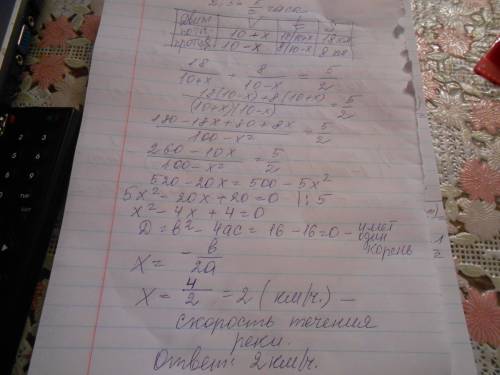 часа
Движ V t S
по т. 10+x 18/10+x 18 км
против 10-x 8/10-x 8 км
18/(10+x) + 8/(10-x) = 5/2
(18(10-x)+8(10+x))/((10+x)(10-x)) = 5/2
(180-18x+80+8x)/(100-x²) = 5/2
(260-10x)/(100-x²) = 5/2
520-20x=500-5x²
5x²-20x+20=0 |:5
x²-4x+4=0
D=b²-4ac=16-16=0- имеет один корень
x= -b/2a
x= 4/2 =2 (км/ч.) —
скорость течения
реки.
Ответ: 2 км/ч.